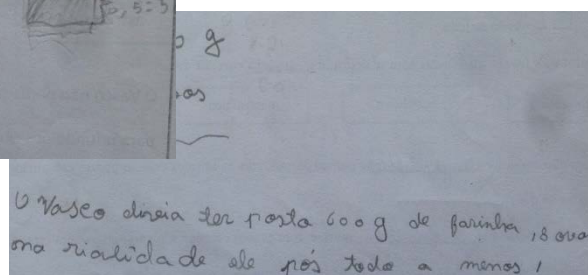 5,5=3
g
os
O Vasco diveia ter posto 600 g de farinha, 8 ova
ma rialidade ele pós todo a menos!